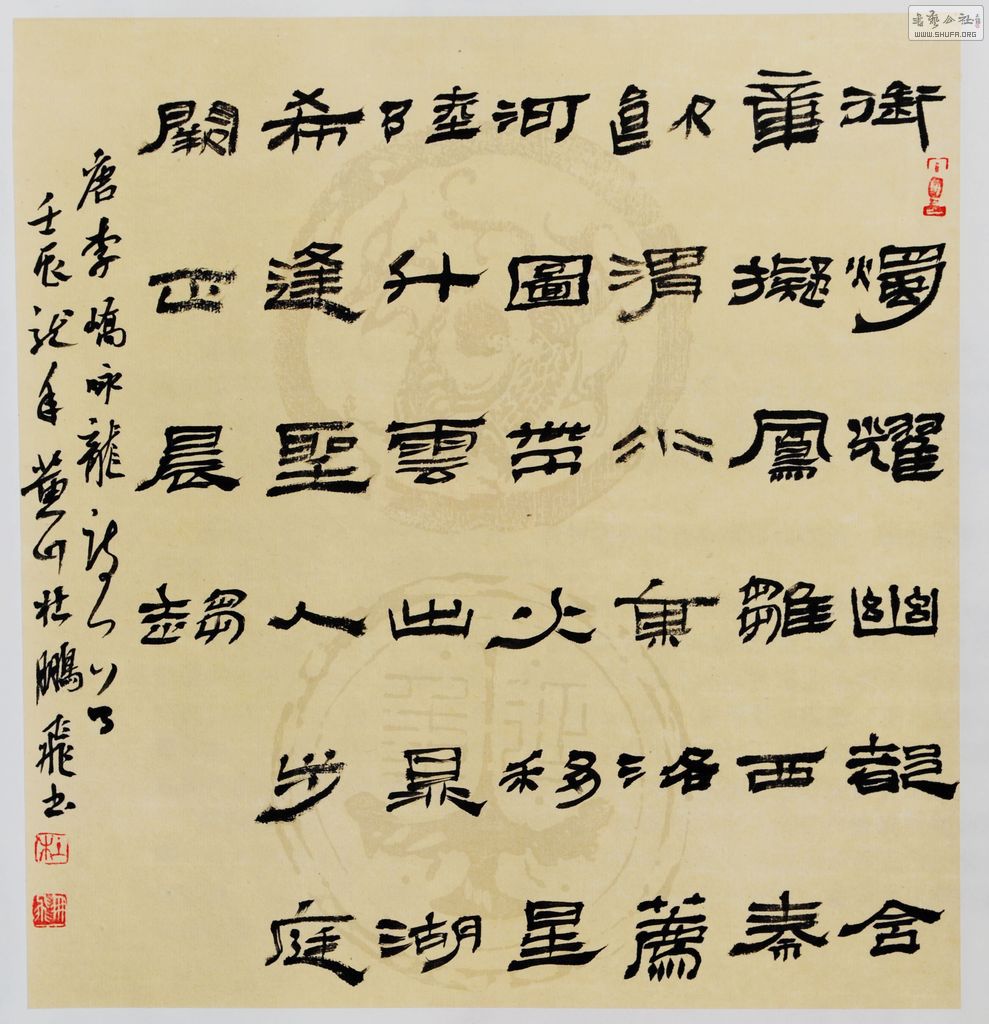 銜燭耀幽都含
章擬鳳雛西秦
飲渭水東洛薦
河圖帶火移星
陸升雲出鼎湖
希逢聖人步庭
闕正晨趨
唐李嶠咏龍詩
壬辰龍年黃山杜鵬飛書
書藝公社
WWW.SHUFA.ORG